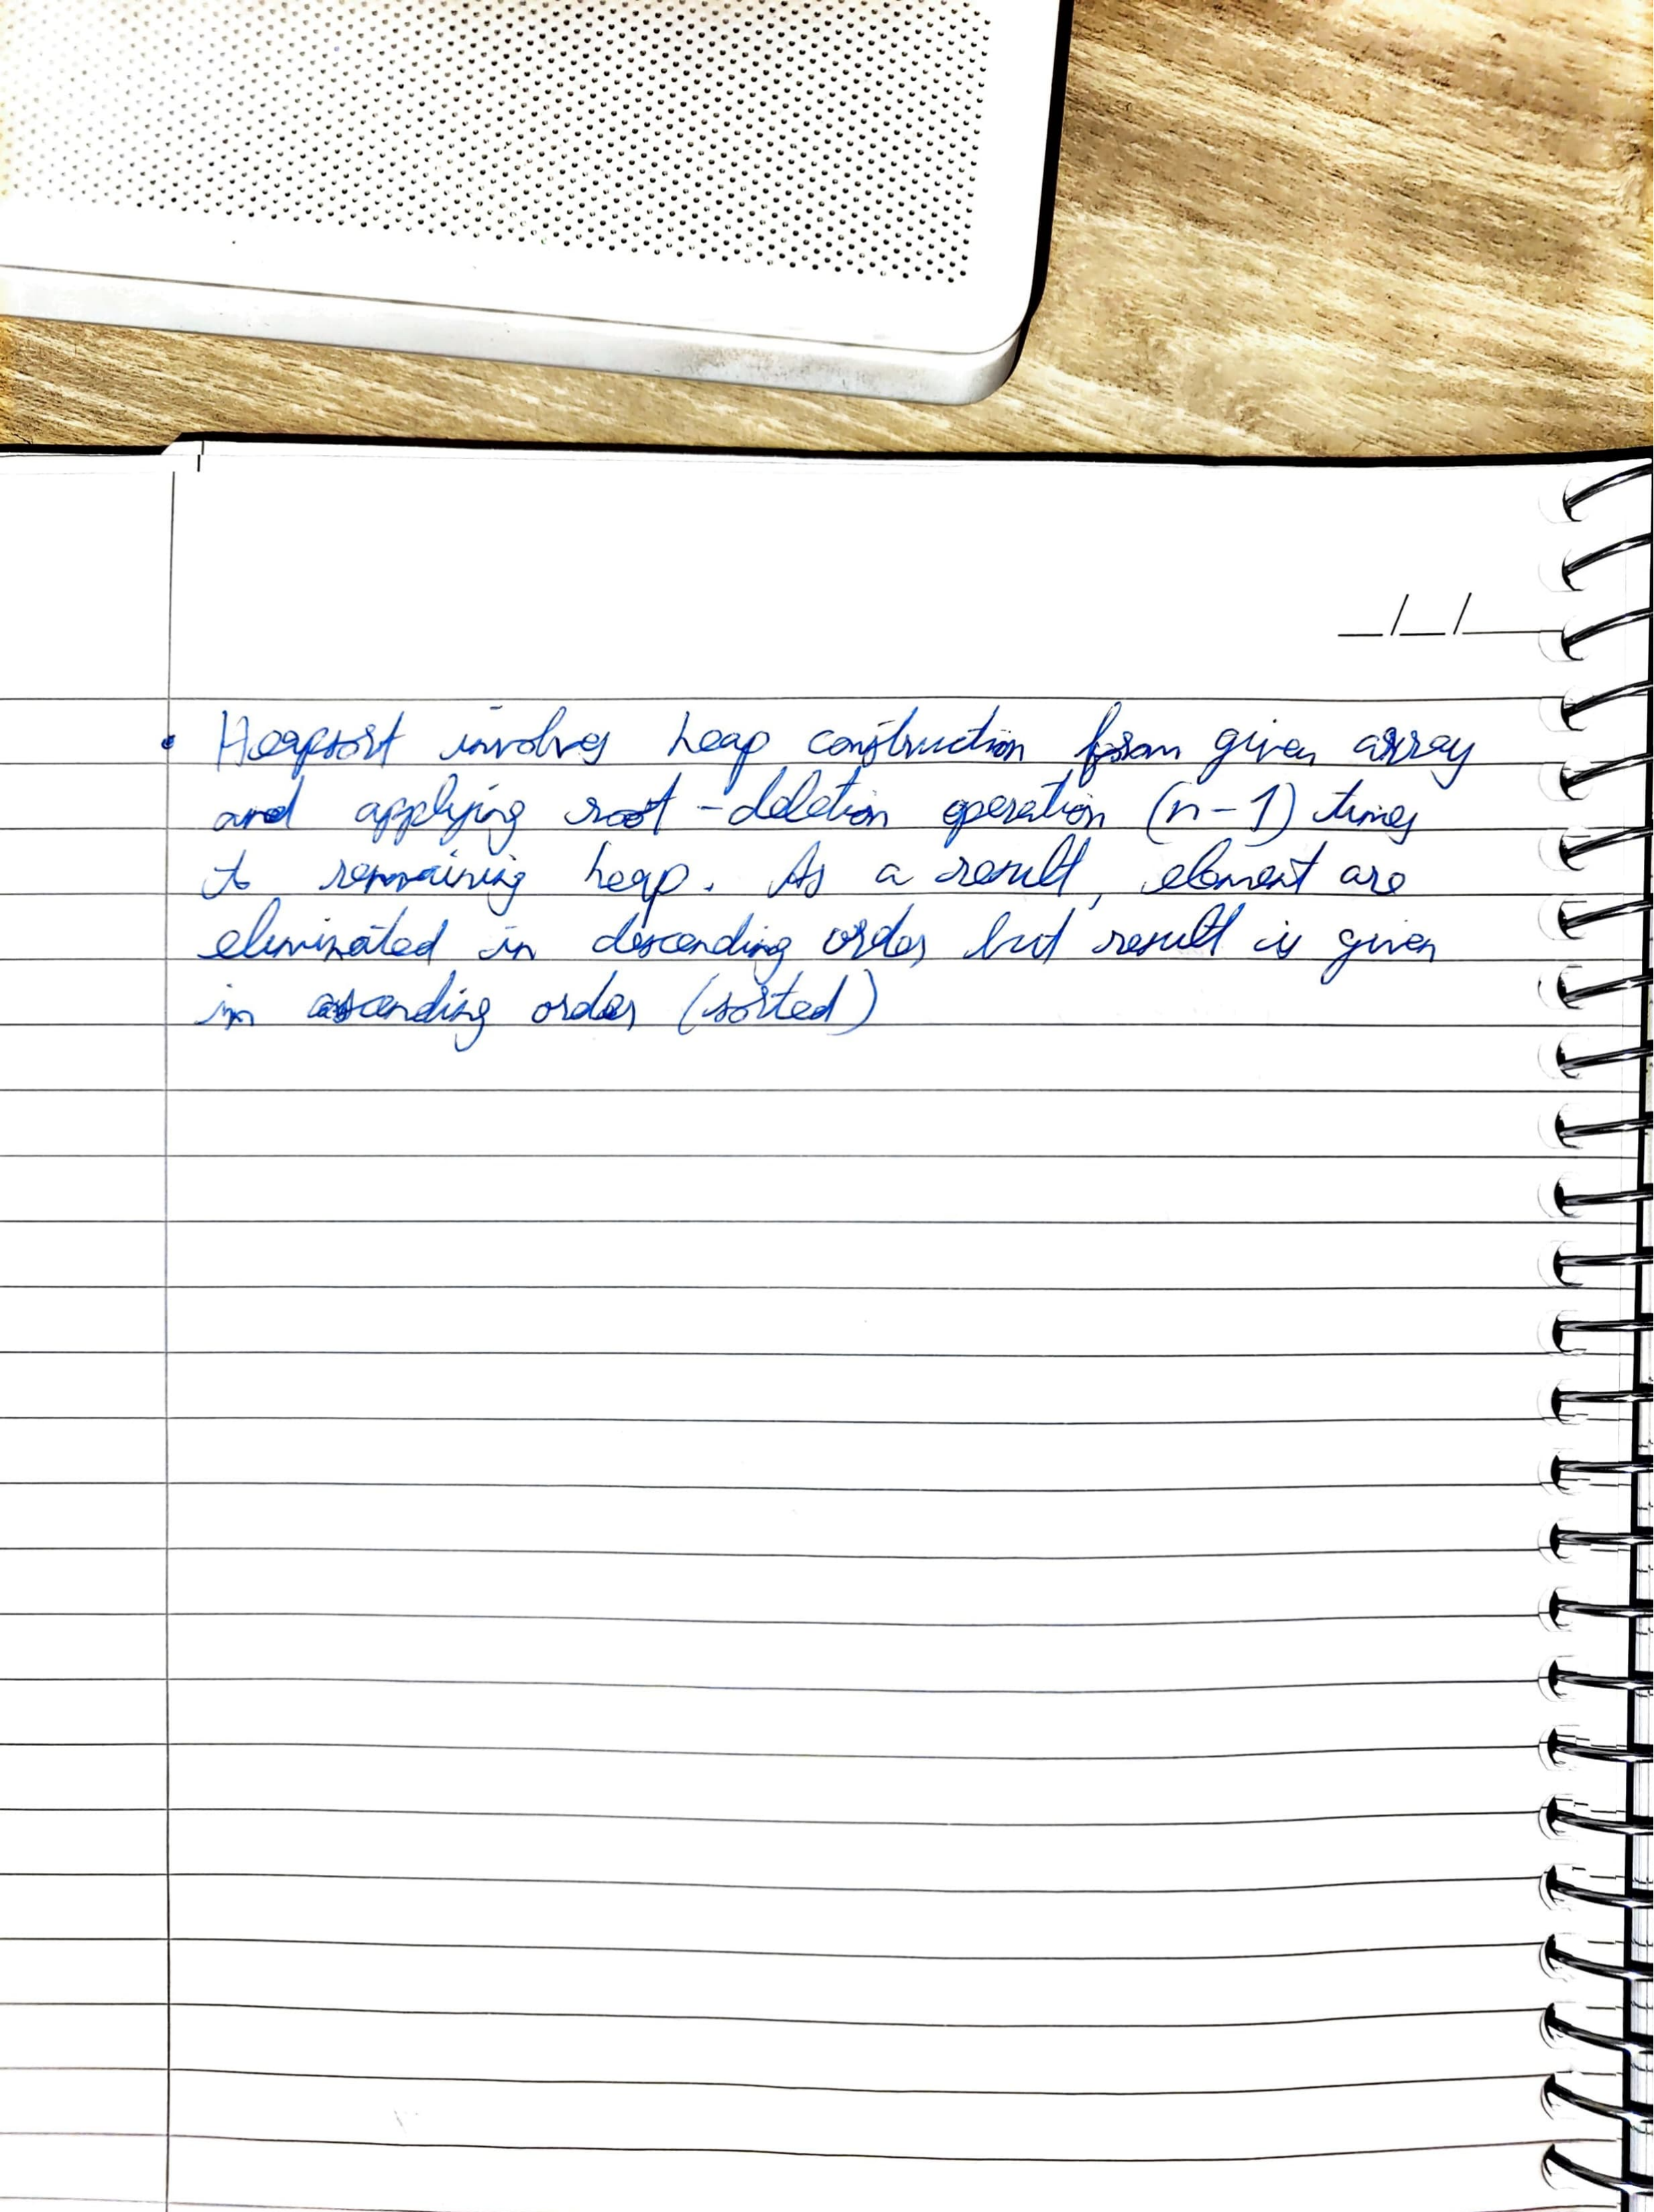 • Heapsort involves heap construction from given array
and applying root - deletion operation (n-1) times
to remaining heap. As a result, element are
eliminated in descending order but result is given
in ascending order (sorted)